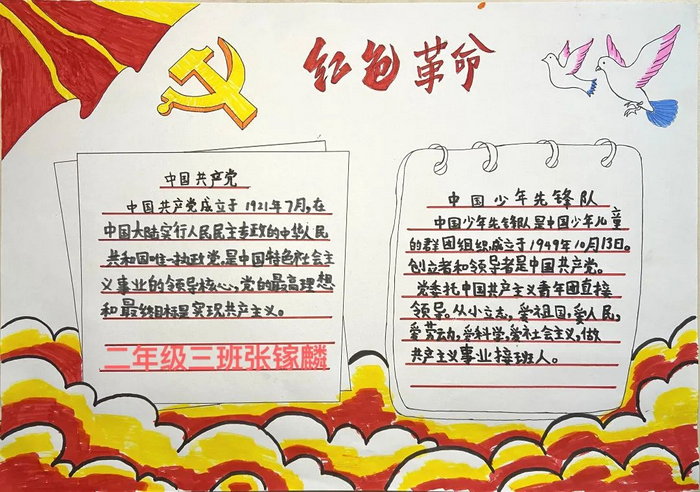 红色革命
中国共产党
中国共产党成立于1921年7月,在
中国大陆实行人民民主专政的中华人民
共和国唯一执政党,是中国特色社会主
义事业的领导核心,党的最高理想
和最终目标是实现共产主义。
二年级三班张镓麟
中国少年先锋队
中国少年先锋队是中国少年儿童
的群团组织成立于1949年10月13日。
创立者和领导者是中国共产党。
党委托中国共产主义青年团直接
领导。从小立志,爱祖国,爱人民,
爱劳动,爱科学,爱社会主义,做
共产主义事业接班人。